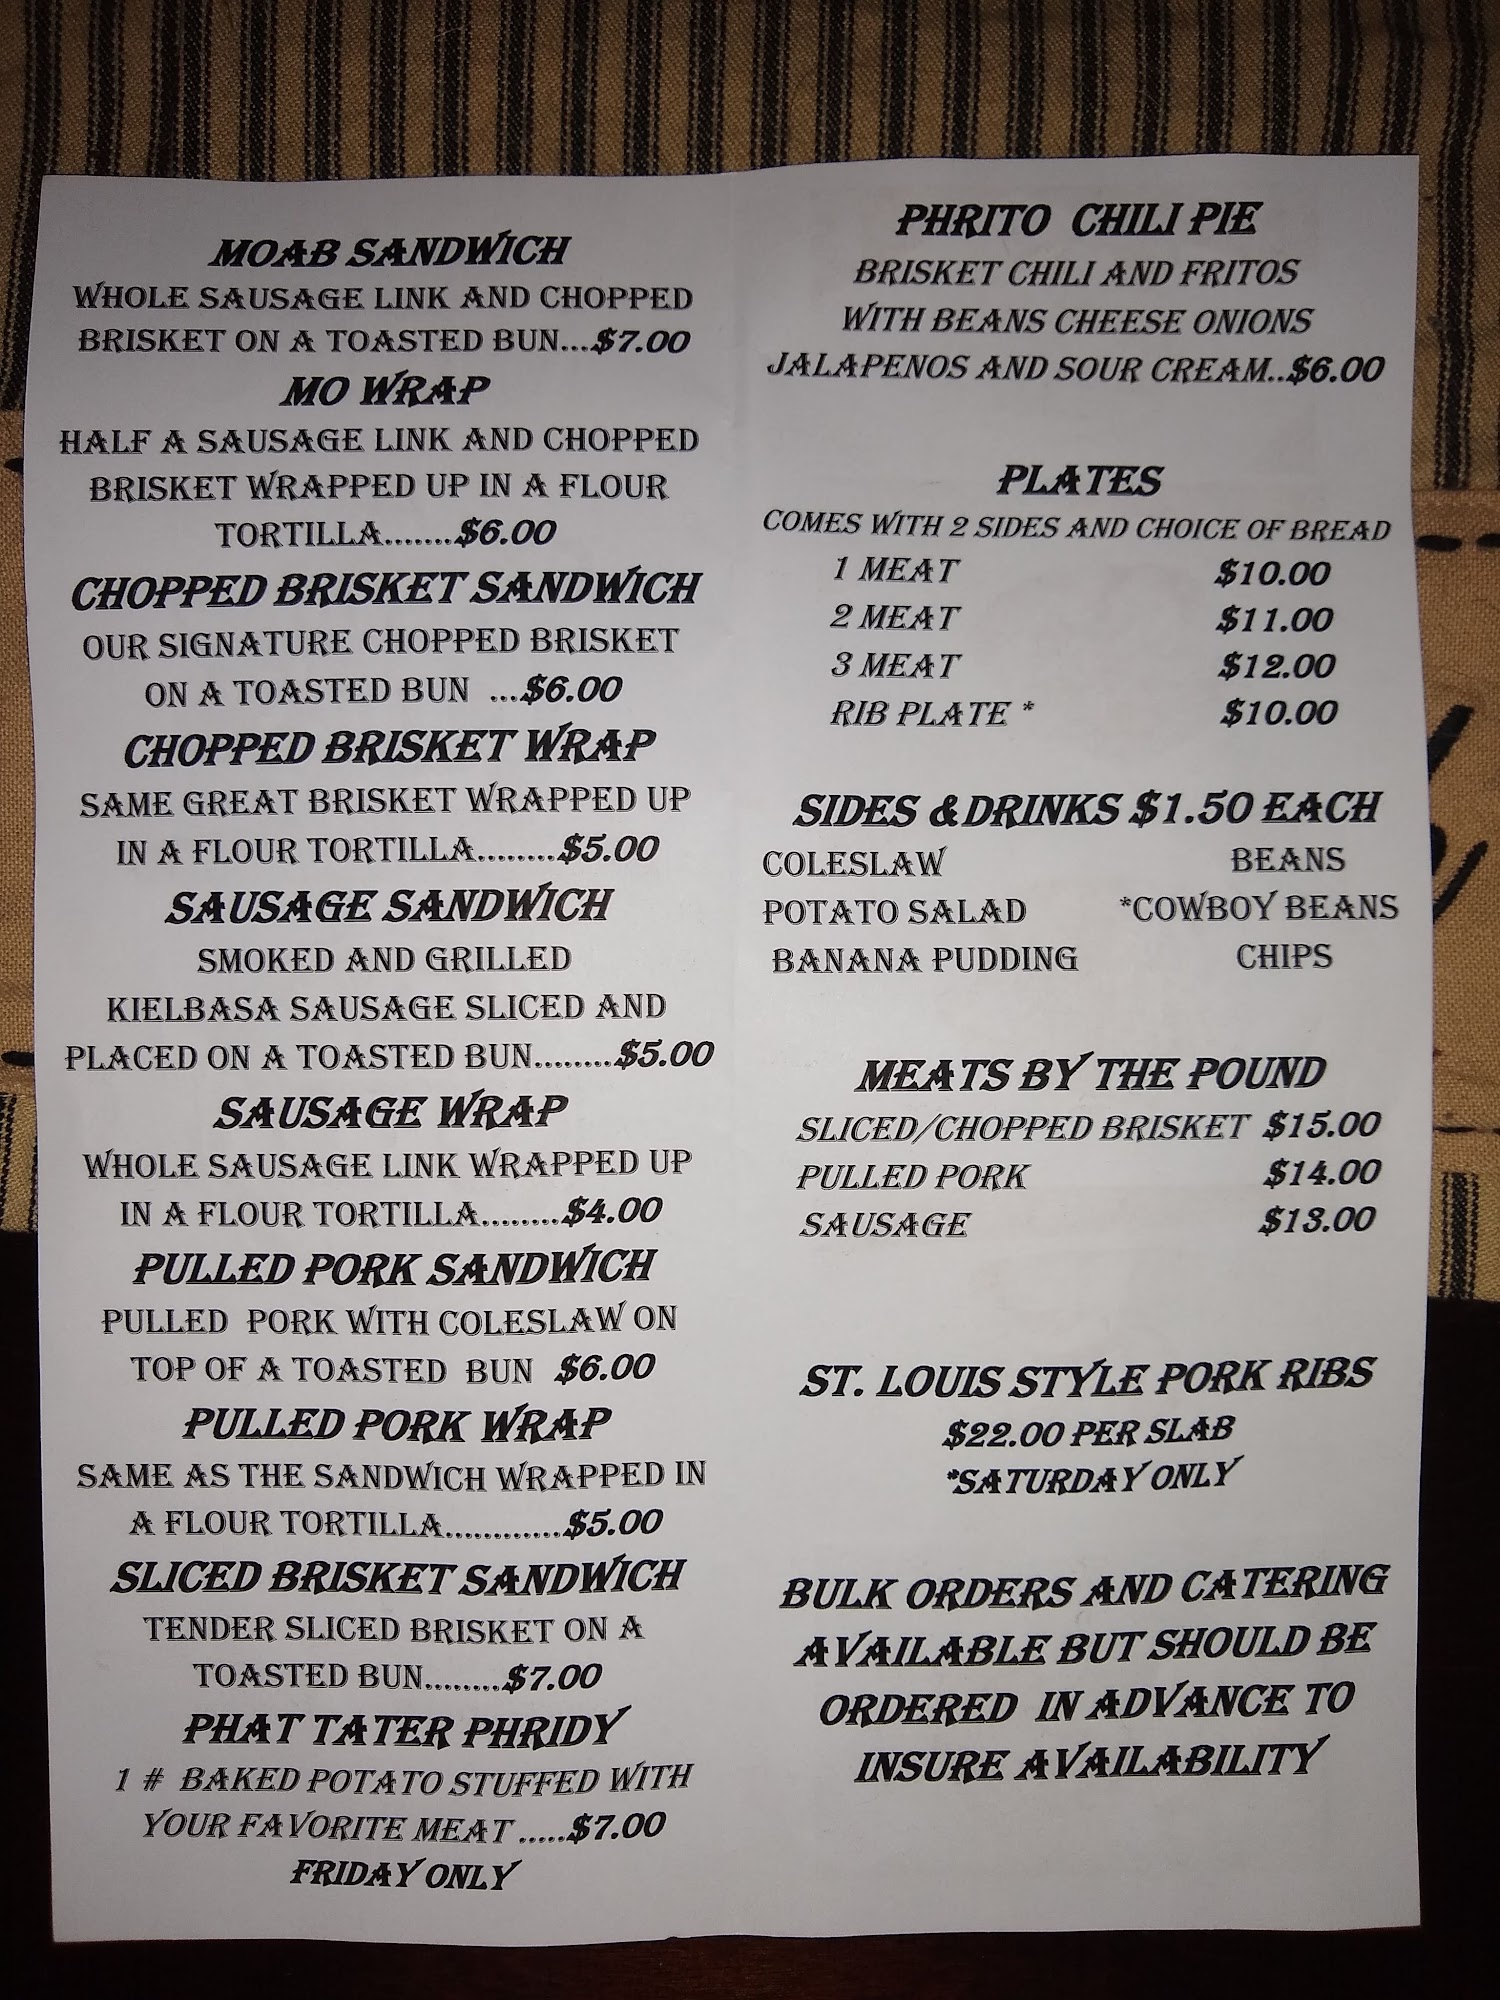 MOAB SANDWICH
WHOLE SAUSAGE LINK AND CHOPPED
BRISKET ON A TOASTED BUN...$7.00
MO WRAP
HALF A SAUSAGE LINK AND CHOPPED
BRISKET WRAPPED UP IN A FLOUR
TORTILLA.......$6.00
CHOPPED BRISKET SANDWICH
OUR SIGNATURE CHOPPED BRISKET
ON A TOASTED BUN ...$6.00
CHOPPED BRISKET WRAP
SAME GREAT BRISKET WRAPPED UP
IN A FLOUR TORTILLA........$5.00
SAUSAGE SANDWICH
SMOKED AND GRILLED
KIELBASA SAUSAGE SLICED AND
PLACED ON A TOASTED BUN........$5.00
SAUSAGE WRAP
WHOLE SAUSAGE LINK WRAPPED UP
IN A FLOUR TORTILLA........$4.00
PULLED PORK SANDWICH
PULLED PORK WITH COLESLAW ON
TOP OF A TOASTED BUN $6.00
PULLED PORK WRAP
SAME AS THE SANDWICH WRAPPED IN
A FLOUR TORTILLA............$5.00
SLICED BRISKET SANDWICH
TENDER SLICED BRISKET ON A
TOASTED BUN........$7.00
PHAT TATER PHRIDY
1 # BAKED POTATO STUFFED WITH
YOUR FAVORITE MEAT .....$7.00
FRIDAY ONLY
PHRITO CHILI PIE
BRISKET CHILI AND FRITOS
WITH BEANS CHEESE ONIONS
JALAPENOS AND SOUR CREAM..$6.00
PLATES
COMES WITH 2 SIDES AND CHOICE OF BREAD
1 MEAT $10.00
2 MEAT $11.00
3 MEAT $12.00
RIB PLATE * $10.00
SIDES & DRINKS $1.50 EACH
COLESLAW BEANS
POTATO SALAD *COWBOY BEANS
BANANA PUDDING CHIPS
MEATS BY THE POUND
SLICED/CHOPPED BRISKET $15.00
PULLED PORK $14.00
SAUSAGE $13.00
ST. LOUIS STYLE PORK RIBS
$22.00 PER SLAB
*SATURDAY ONLY
BULK ORDERS AND CATERING
AVAILABLE BUT SHOULD BE
ORDERED IN ADVANCE TO
INSURE AVAILABILITY